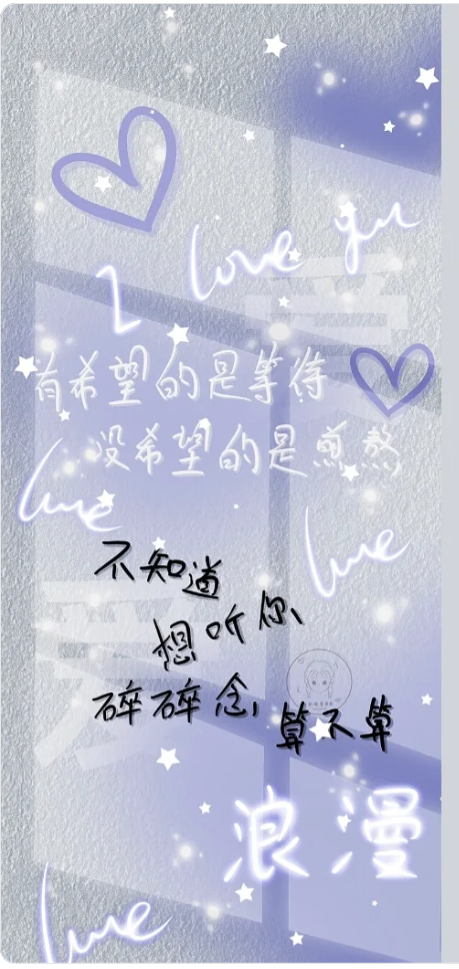 I love you
有希望的是等待
没希望的是煎熬
love
love
不知道
想听你
碎碎念
算不算
浪漫
love